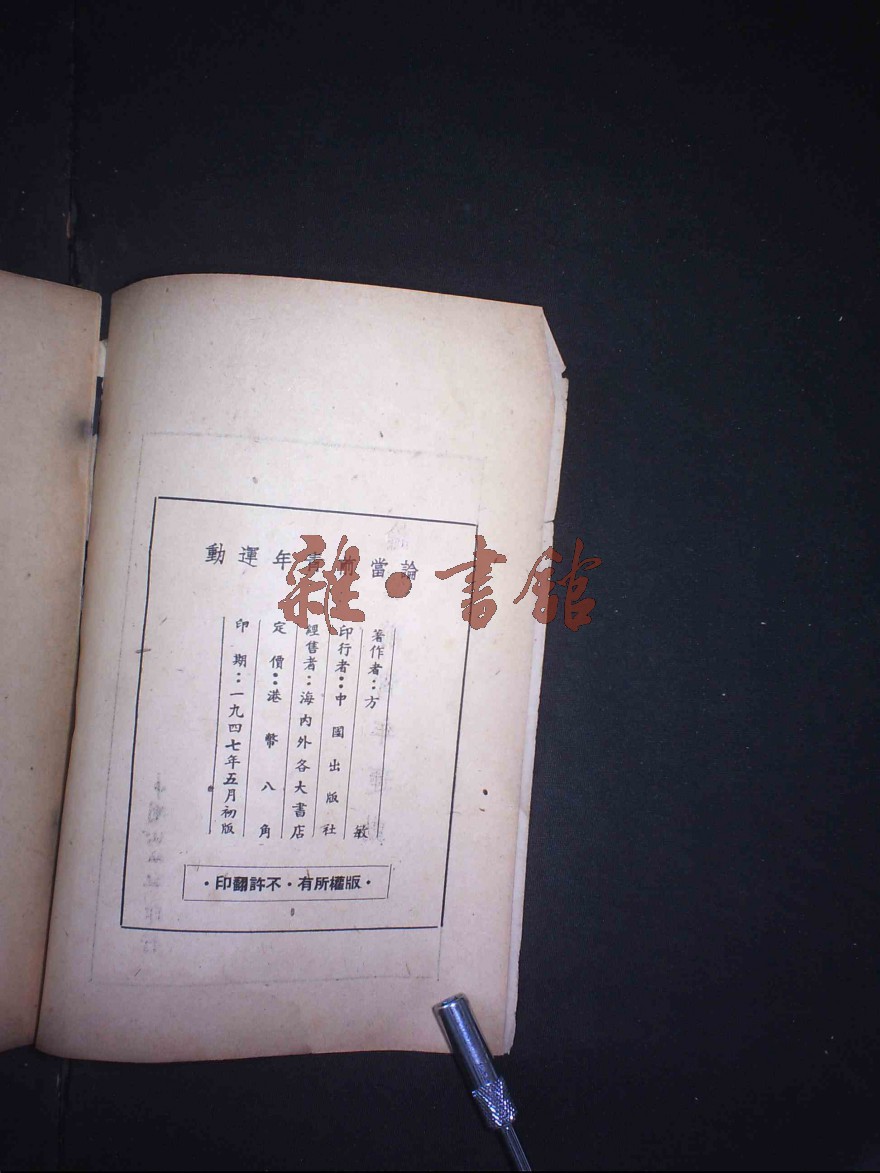 論當前青年運動
著作者：方敏
印行者：中國出版社
經售者：海內外各大書店
定價：港幣八角
印期：一九四七年五月初版
·版權所有·不許翻印·
雜·書館